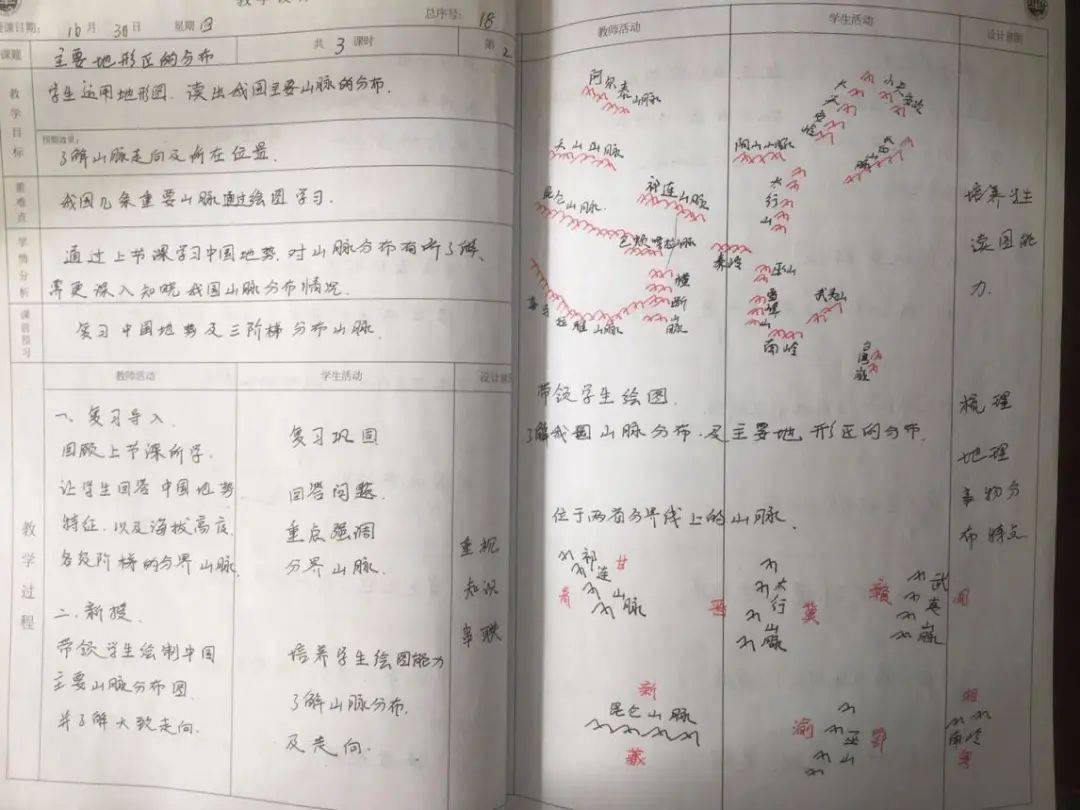 总序号: 18
授课日期: 10月30日 星期四
课题 主要地形区的分布 共3课时 第2
教学目标
学生运用地形图, 读出我国主要山脉的分布.
预期效果:
了解山脉走向及所在位置.
重难点
我国几条重要山脉通过绘图学习.
学情分析
通过上节课学习中国地势, 对山脉分布有所了解,
需更深入知晓我国山脉分布情况.
课前预习
复习中国地势及三阶梯分布山脉.
教学过程
教师活动 学生活动 设计意图
一、复习导入.
回顾上节课所学.
让学生回答中国地势
特征, 以及海拔高度,
各级阶梯的分界山脉.
二、新授.
带领学生绘制中国
主要山脉分布图.
并了解大致走向.
复习巩固
回答问题.
重点强调
分界山脉.
培养学生绘图能力
了解山脉分布.
及走向.
重视
知识
串联
教师活动 学生活动 设计意图
阿尔泰山脉
大兴安岭
小兴安岭
天山山脉
阴山山脉
长白山
昆仑山脉
祁连山脉
太行山
秦岭
横断山脉
巫山
雪峰山
武夷山
喜马拉雅山脉
南岭
台湾
培养学生
读图能
力.
带领学生绘图.
了解我国山脉分布.及主要地形区的分布.
梳理
地理
事物分
布特点
位于两省分界线上的山脉.
祁连山脉
甘
青
太行山脉
晋
冀
武夷山脉
赣
闽
新
昆仑山脉
藏
渝
巫山
鄂
湘
南岭
粤